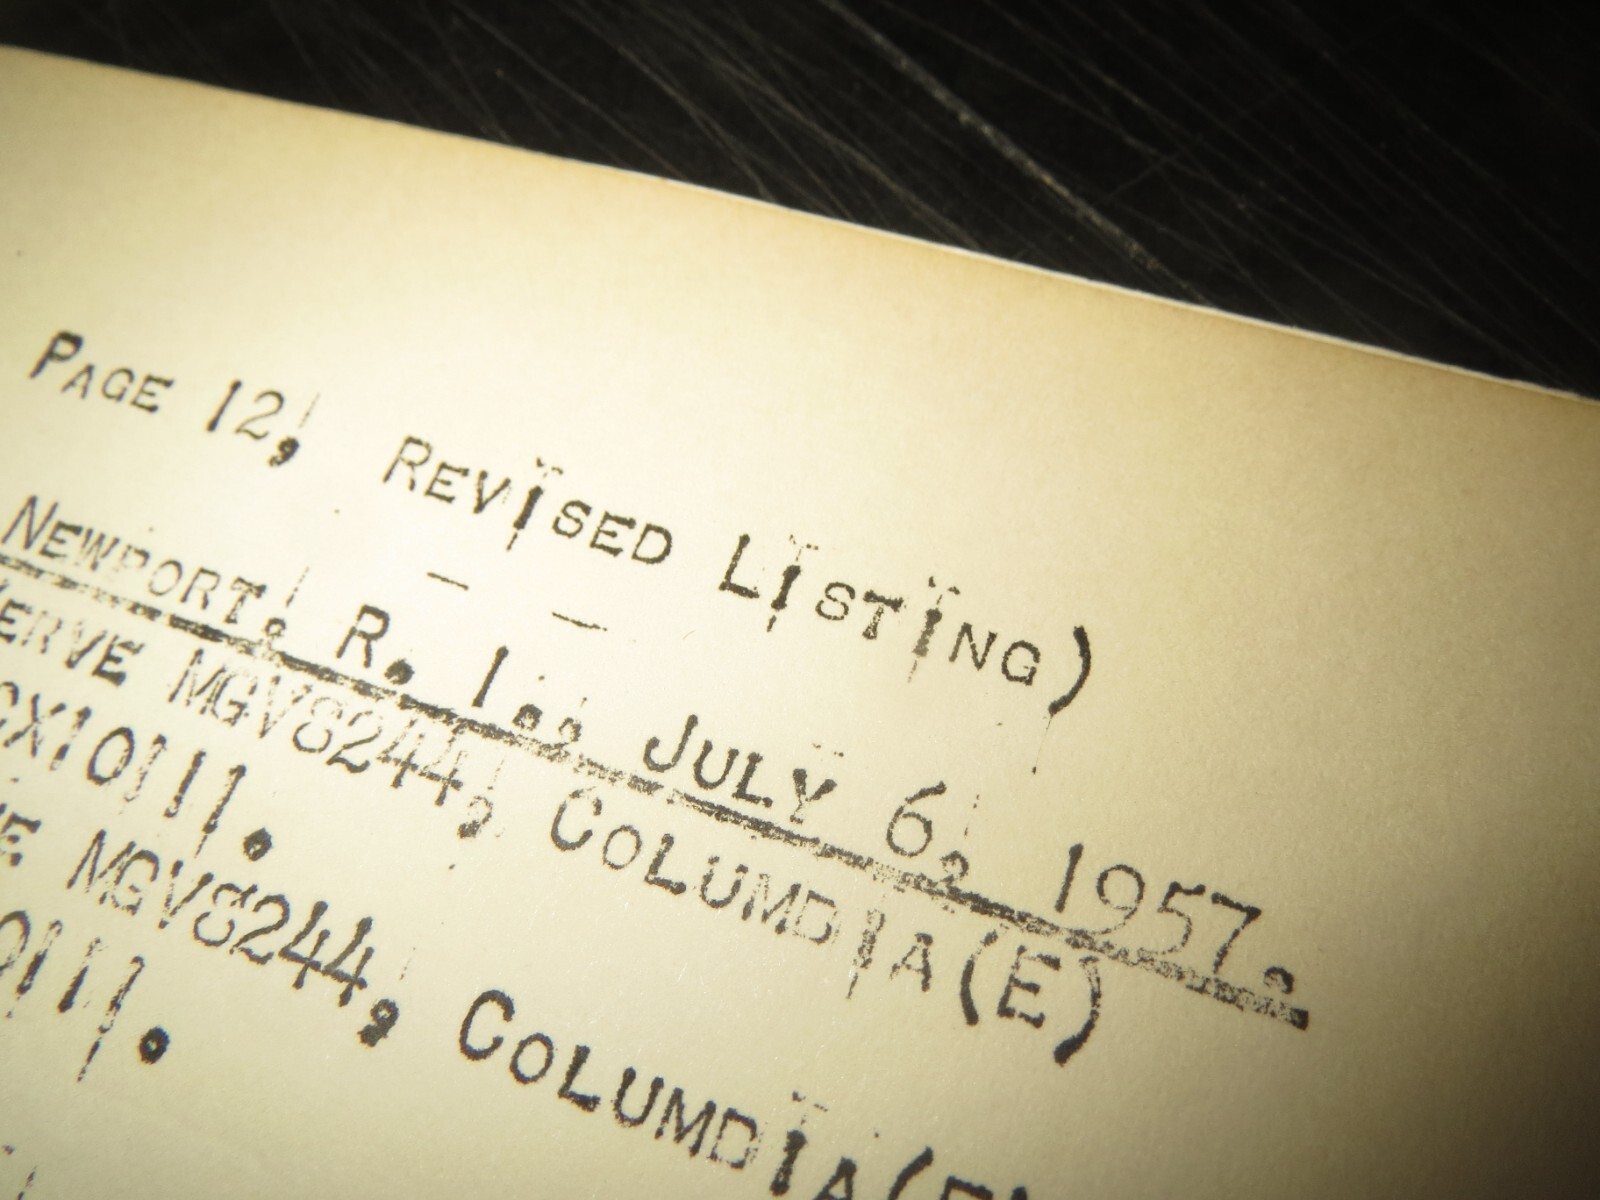 PAGE 12, REVISED LISTING)
NEWPORT, R. I., JULY 6, 1957.
ERVE MGV8244, COLUMBIA(E)
CX10111.
E MGV8244, COLUMBIA(E)
0111.